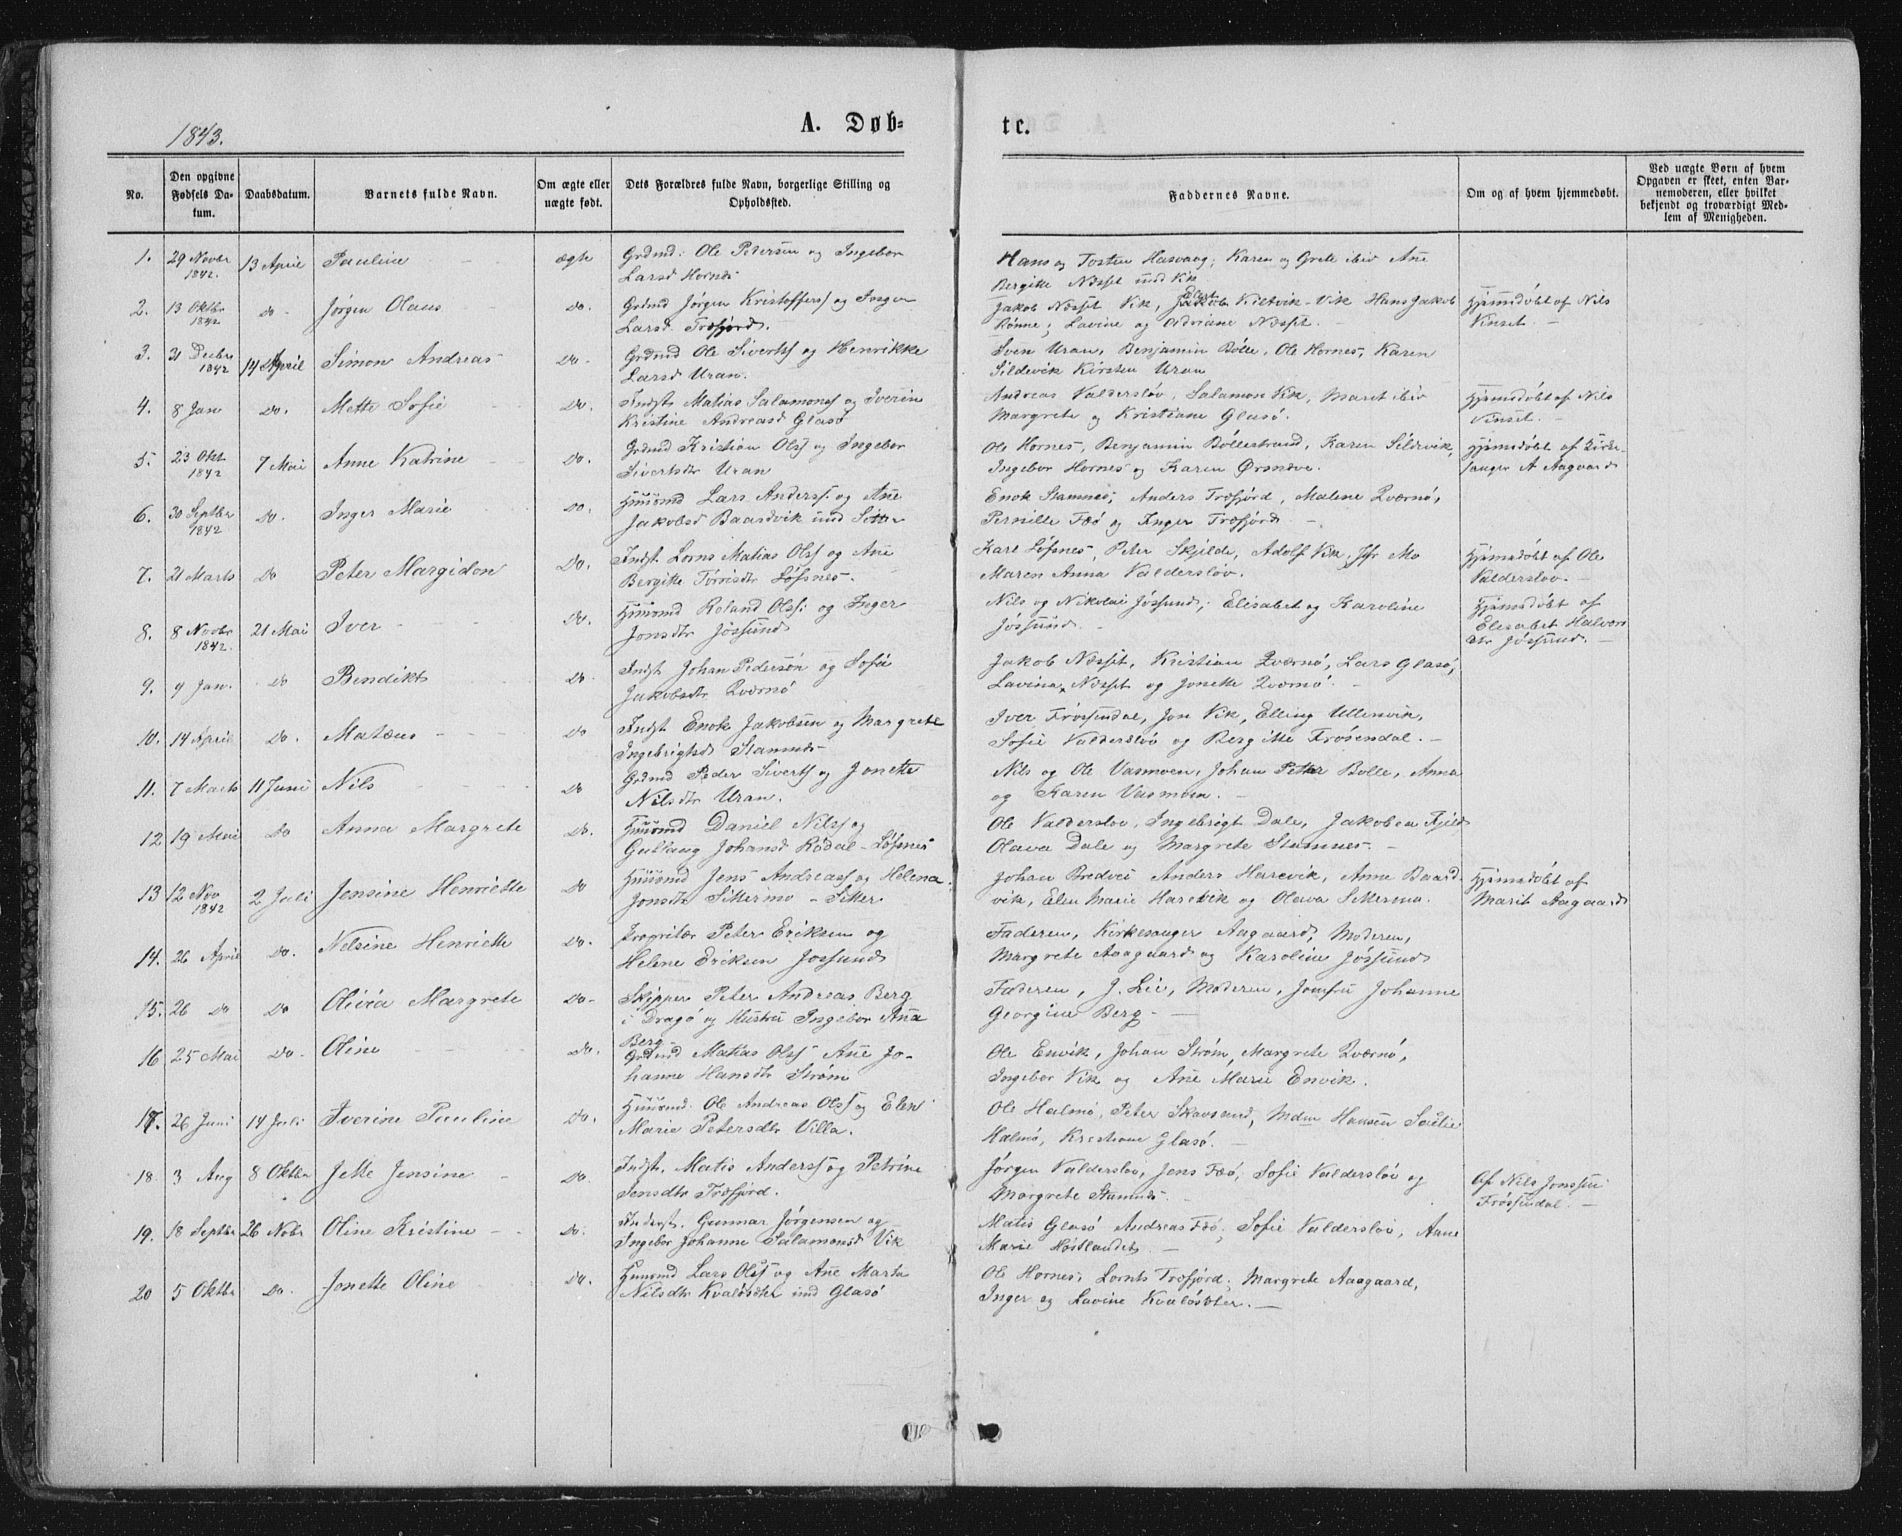 1843.
A. Døb-
te.
No.
Den opgivne Fødsels Datum.
Daabsdatum.
Barnets fulde Navn.
Om ægte eller uægte født.
Dets Forældres fulde Navn, borgerlige Stilling og Opholdsted.
Faddernes Navne.
Om og af hvem hjemmedøbt.
Ved uægte Børn af hvem Opgaven er skeet, enten Barnemoderen, eller hvilket bekjendt og troværdigt Medlem af Menigheden.
1. 29 Novbr 1842. 13 April Pauline ægte Grdmd: Ole Petersen og Ingebor
Larsd Hornes
Hans og Tosten Hasvaag; Karen og Grete ibid Ane
Bergite Næsset und Vik
2. 13 Oktbr 1842 Do Jørgen Olaus Do. Grdmd Jørgen Kristoffers og Inger
Larsd. Træfjord.
Jakob Næsset Vik, Vik Hans Jakob
Rønne; Lavine og Adriane Næsset.
Hjemdøbt af Nils
Vinset.
3. 31 Decbr 1842 14 April Simon Andreas Do Grdmd Ole Siverts og Henrikke
Larsd Uran.
Sven Uran, Benjamin Bølle, Ole Hornes, Karen
Sildevik Kirsten Uran
4. 8 Jan Do. Mette Sofie Do. Indst Matias Salamons og Iverine
Kristine Andreasd Glasø
Andreas Valdersløv, Salamon Vik, Marit ibid
Margrete og Kristiane Glasø.
Hjemdøbt af Nils
Vinset.
5. 23 Okt 1842 7 Mai Anne Katrine Do. Grdmd Kristian Ols og Ingebor
Sivertsdtr Uran
Ole Hornes, Benjamin Bøllestrand, Karen Sildevik,
Ingebor Hornes og Karen
Hjemdøbt af Kirke-
sanger A Aagaard
6. 30 Septbr 1842 Do. Inger Marie Do. Huusmd Lars Anders. og Ane
Jakobsd Baardvik und Sitter
Enok Stamnes, Anders Træfjord, Malene Qværnø,
Pernille Fæø og Inger Træfjord
7. 21 Marts Do Peter Margidon Do. Indst. Lorns Matias Ols og Ane
Bergitte Torrisdtr Løfsnes.
Karl Løfsnes, Peter Skjelde, Adolf Vik, Jfr Mo
Maren Anna Valdersløv.
Hjemdøbt af Ole
Valdersløv.
8. 8 Novbr 1842. 21 Mai Iver Do. Huusmd Roland Ols: og Inger
Jonsdtr Jøssund
Nils og Nikolai Jøssund; Elisabet og Karoline
Jøssund.
Hjemdøbt af
Elisabet Halvors
dtr Jøssund.
9. 9 Jan. Do Bendikt Do Indst Johan Pedersen og Sofie
Jakobsdtr Qværnø
Jakob Næsset, Kristian Qværnø, Lars Glasø,
Lavina Næsset og Jonette Qværnø.
10. 14 April Do. Matæus Do Indst Enok Jakobsen og Margrete
Ingebrigtsd Stamnes
Iver Frøsendal, Jon Vik, Elling Ullenvik,
Sofie Valdersløv og Bergitte Frøsendal.
11. 7 Marts 11 Juni Nils Do Grdmd Peder Siverts og Jonette
Nilsdtr Uran.
Nils og Ole Vasmoen, Johan Petter Bolle, Anna
og Karen Vasmoen.
12 19 Mai Do Anna Margrete Do. Huusmd Daniel Nils og
Gullaug Johansd Rødal - Løfsnes
Ole Valdersløv, Ingebrigt Dale, Jakobea Fjeld
Olava Dale og Margrete Stamnes.
13 12 Nov 1842 2 Juli Jensine Henriette Do Huusmd Jens Andreas og Helena
Jonsdtr Sittermo - Sitter
Johan Bredvei Anders Harevik, Anne Baard-
vik, Elen Marie Harevik og Olava Sittermo.
Hjemdøbt af
Marit Aagaard
14. 26 April Do. Nelsine Henriette Do. Proprietær Peter Eriksen og
Helene Eriksen Jøssund
Faderen, Kirkesanger Aagaard, Moderen,
Margrete Aaagaard og Karoline Jøssund
15. 26 Do Do Olivia Margrete Do Skipper Peter Andreas Berg
i Dragø og Hustru Ingebor Ana
Berg
Faderen, J. Lie, Moderen, Jomfru Johanne
Georgine Berg.
16 25 Mai Do. Oline Do. Grdmd Matias Ols Ane Jo-
hanne Hansdtr Strøm
Ole Envik, Johan Strøm, Margrete Qværnø,
Ingebor Vik og Ane Marie Envik.
17. 26 Juni 14 Juli Iverine Pauline Do. Huusmd: Ole Andreas Ols og Elen
Marie Petersdtr Villa.
Ole Halmø, Peter Skavsand, Mdm Hansen
Halmø, Kristiane Glasø.
18. 3 Aug 8 Oktbr Jette Jensine Do. Indst. Matis Anders og Petrine
Jensdtr Træfjord.
Jørgen Valdersløv, Jens Fæø, Sofie Valdersløv og
Margrete Stamnes
Af Nils Jonssen
Frøsendal.
19. 18 Septbr 26 Nobr Oline Kristine Do. Inderst. Gunnar Jørgensen og
Ingebor Johanne Salamonsd Vik
Matis Glasø Andreas Fæø, Sofie Valdersløv, Anne
Marie Høstlandet.
20 5 Oktbr Do. Jonette Oline Do. Huusmd Lars Ols og Ane Marta
Nilsdtr Kvaløsæter und Glasø
Ole Hornes, Lornts Træfjord, Margrete Aaagaard,
Inger og Lavine Kvaløsæter.